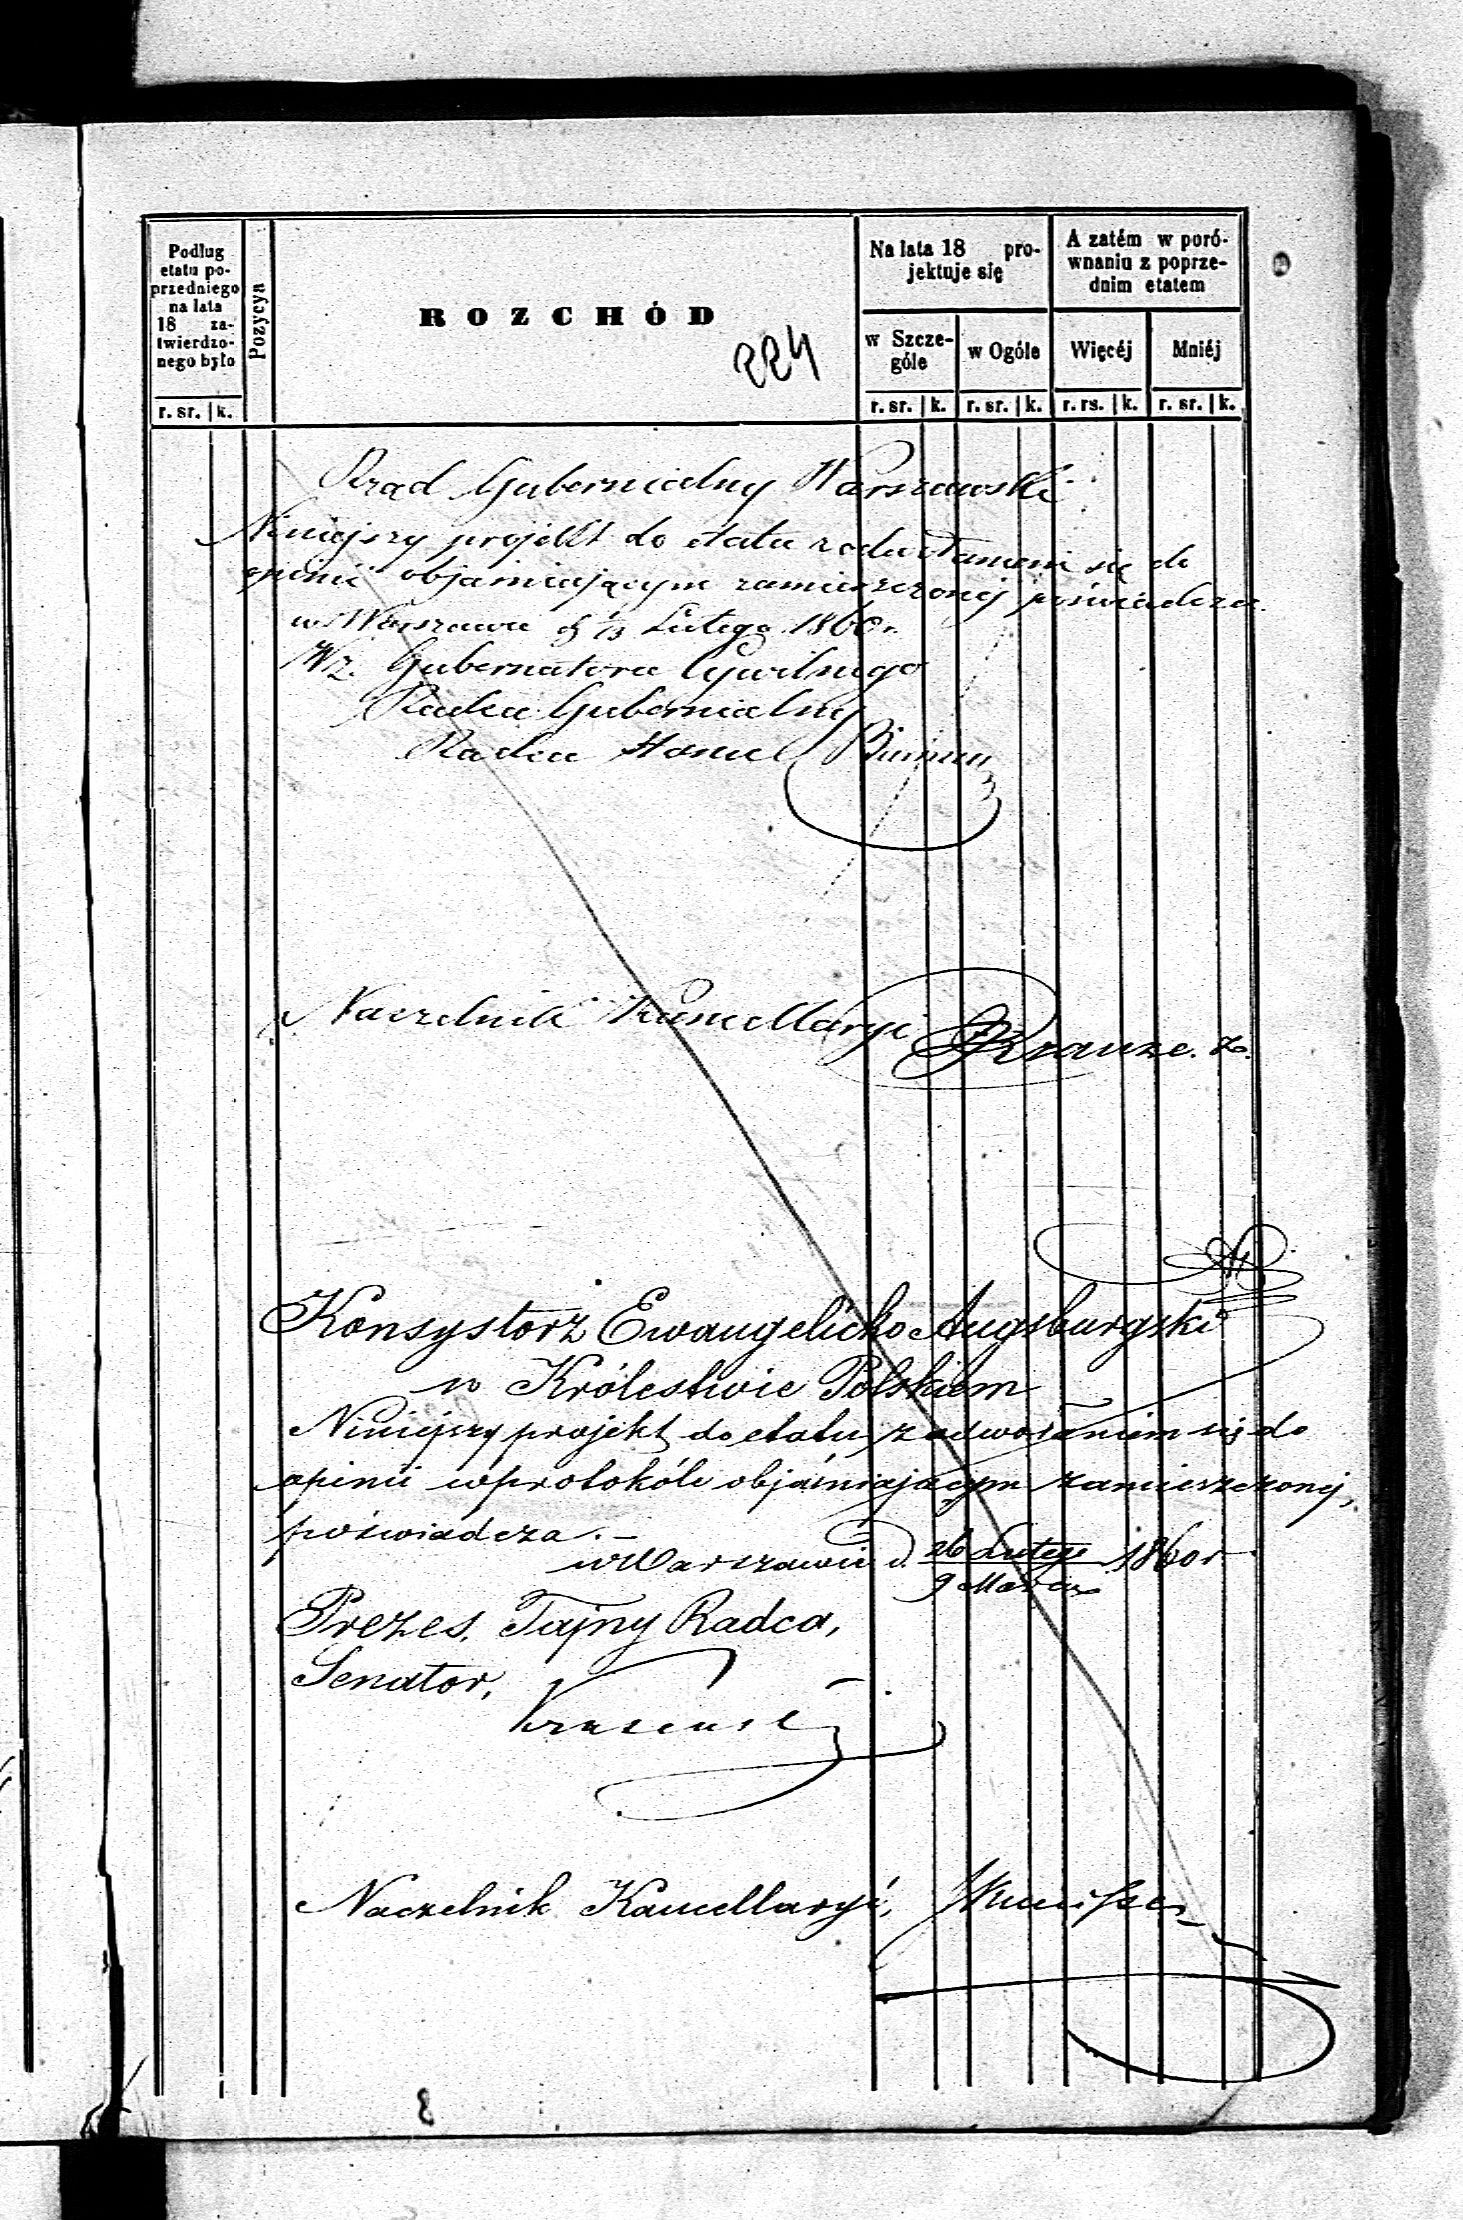 Podług etatu poprzedniego na lata 18 zatwierdzonego było
Pozycya
ROZCHÓD
Na lata 18 projektuje się
A zatém w porównaniu z poprzednim etatem
w Szczególe
w Ogóle
Więcéj
Mniéj
r. sr. k.
r. sr. k.
r. sr. k.
r. rs. k.
r. sr. k.
224
Rząd Gubernialny Warszawski
Niniejszy projekt do etatu z odwołaniem się do
opinii objaśniającym zamieszczonej poświadcza
w Warszawie d 1/13 Lutego 1860 r.
Wz. Gubernatora Cywilnego
Radca Gubernialny
Radca
Naczelnik Kancellaryi Krauze
Konsystorz Ewangelicko Augsburgski
w Królestwie Polskiem
Niniejszy projekt do etatu z odwołaniem się do
opinii w protokóle objaśniającym zamieszczonej,
poświadcza.—
w Warszawie d. 26 Lutego / 9 Marca 1860 r.
Prezes, Tajny Radca,
Senator,
Naczelnik Kancellaryi,
8